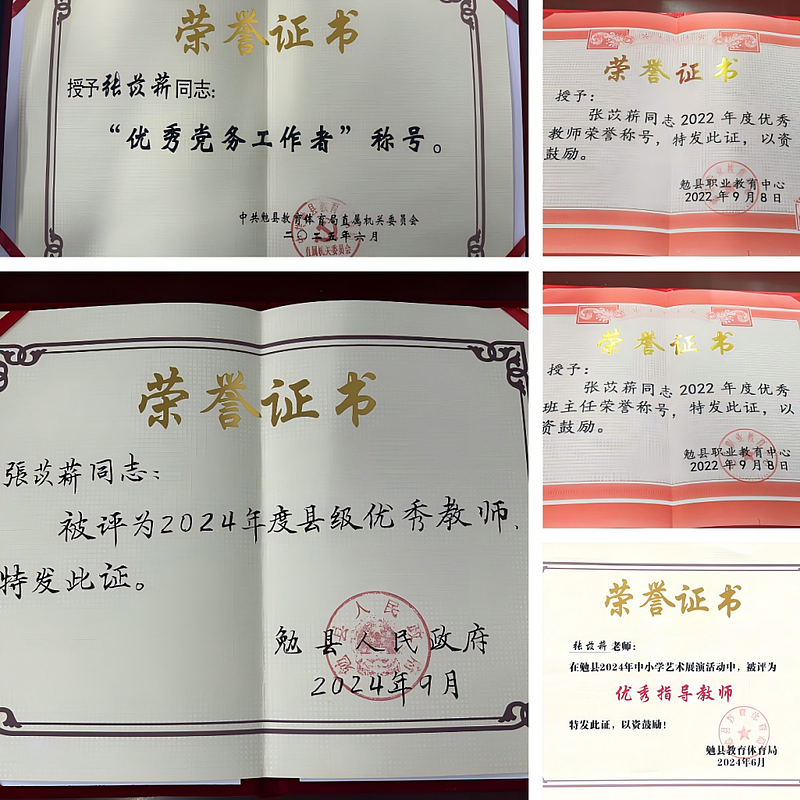 荣誉证书
授予张苡薪同志：
“优秀党务工作者”称号。
中共勉县教育体育局直属机关委员会
二〇二五年六月
直属机关委员会
荣誉证书
張苡薪同志：
被评为2024年度县级优秀教师，
特发此证。
勉县人民政府
2024年9月
荣誉证书
授予：
张苡薪同志2022年度优秀
教师荣誉称号，特发此证，以资
鼓励。
勉县职业教育中心
2022年9月8日
荣誉证书
授予：
张苡薪同志2022年度优秀
班主任荣誉称号，特发此证，以
资鼓励。
勉县职业教育中心
2022年9月8日
荣誉证书
张苡薪老师：
在勉县2024年中小学艺术展演活动中，被评为
优秀指导教师
特发此证，以资鼓励！
勉县教育体育局
2024年6月